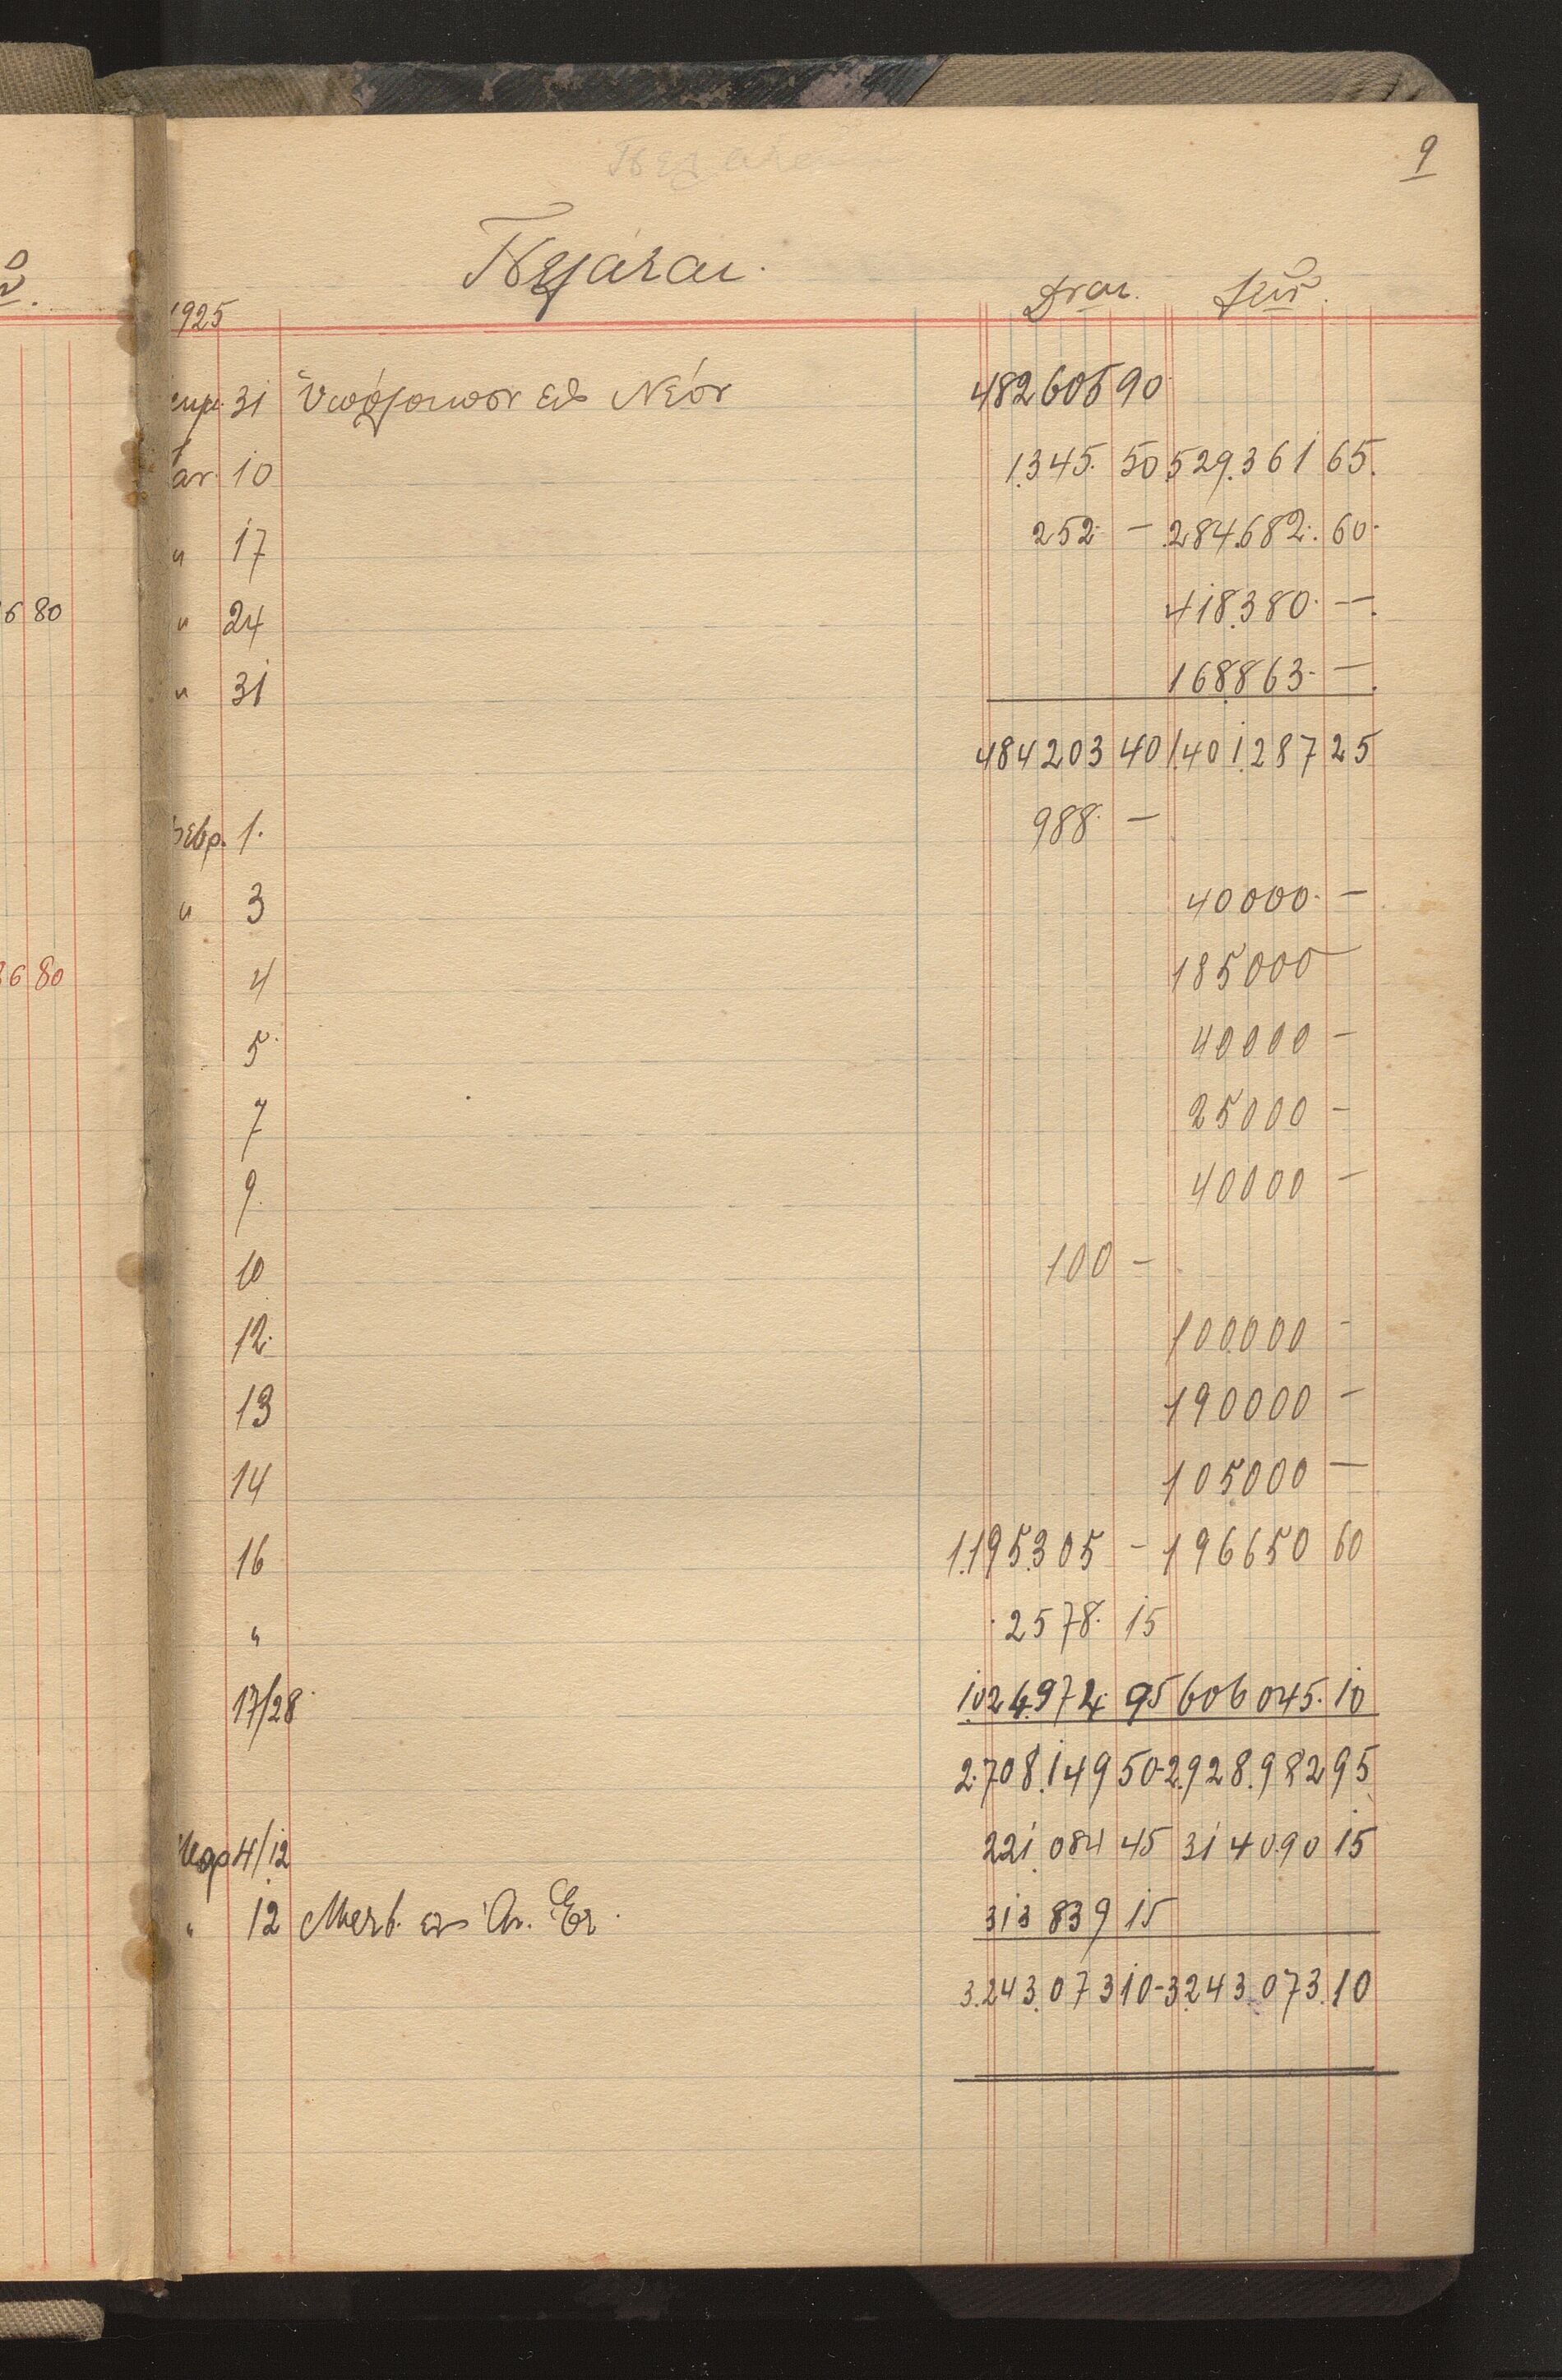 9
Πελάται.
1925 Δναι. Λειν.
31 Ὑπόλοιπον εἰς Νέον 482605 90
10 1.345. 50 529.361 65.
" 17 252 — 284.682. 60
" 24 418.380 —
" 31 168.863 —
484203 40 1.401.287 25
Φεβρ. 1. 988. —
" 3 40000 —
4 185000 —
5 40000 —
7 25000 —
9 40000 —
10 100 —
12 100.000 —
13 190000 —
14 105000 —
16 1.195.305 — 196650 60
" 2578. 15
17/28 1.024.972. 95 606045. 10
2.708.149 50 2.928.982 95
Μαρ 4/12 221.084 45 314.090 15
" 12 Μεταφ. εἰς 313839 15
3.243.073 10 3.243.073. 10
6 80
6 80